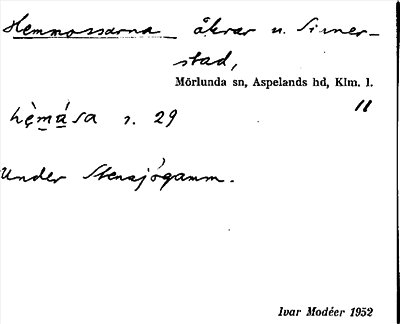 Hemmossarna åkrar u. Sinner-
stad,
Mörlunda sn, Aspelands hd, Klm. l.
11
hèmása s. 29
Under Stensjögamm.
Ivar Modéer 1952